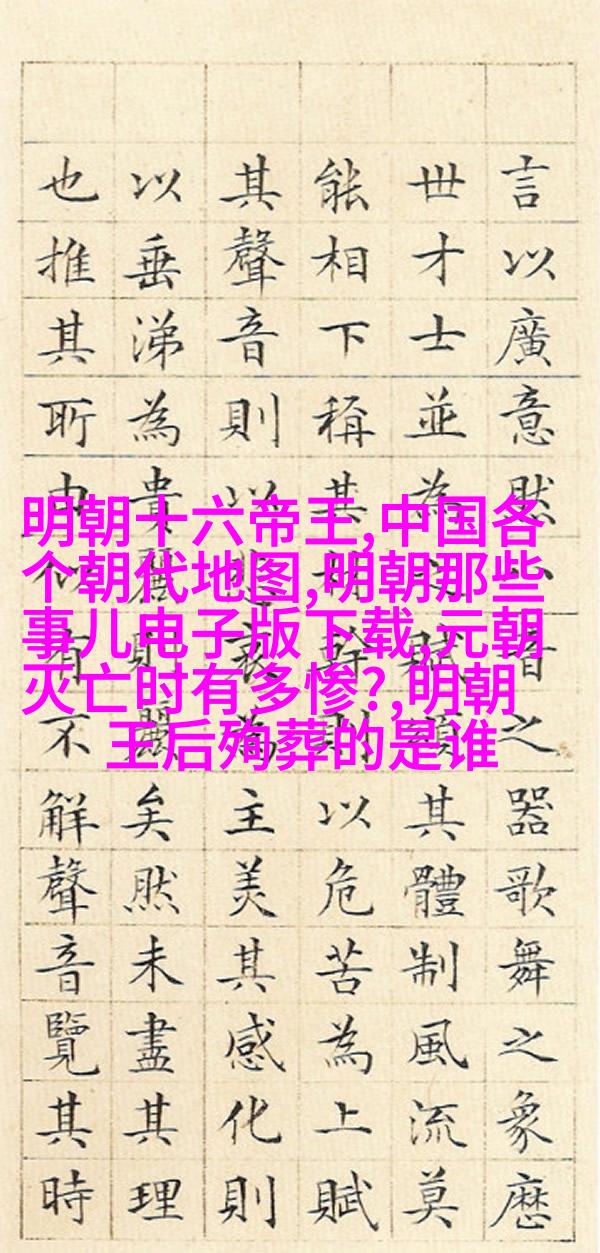 言以廣意然八音之器歌舞之象歷
世才士並為之賦頌其體制風流莫
能相下稱其材幹則以危苦為上賦
其聲音則以悲哀為主美其感化則
以垂涕為貴麗則麗矣然未盡其理
也推其所由似有不解聲音覽其時
明朝十六帝王,中国各
个朝代地图,明朝那些
事儿电子版下载,元朝
灭亡时有多惨?,明朝
王后殉葬的是谁